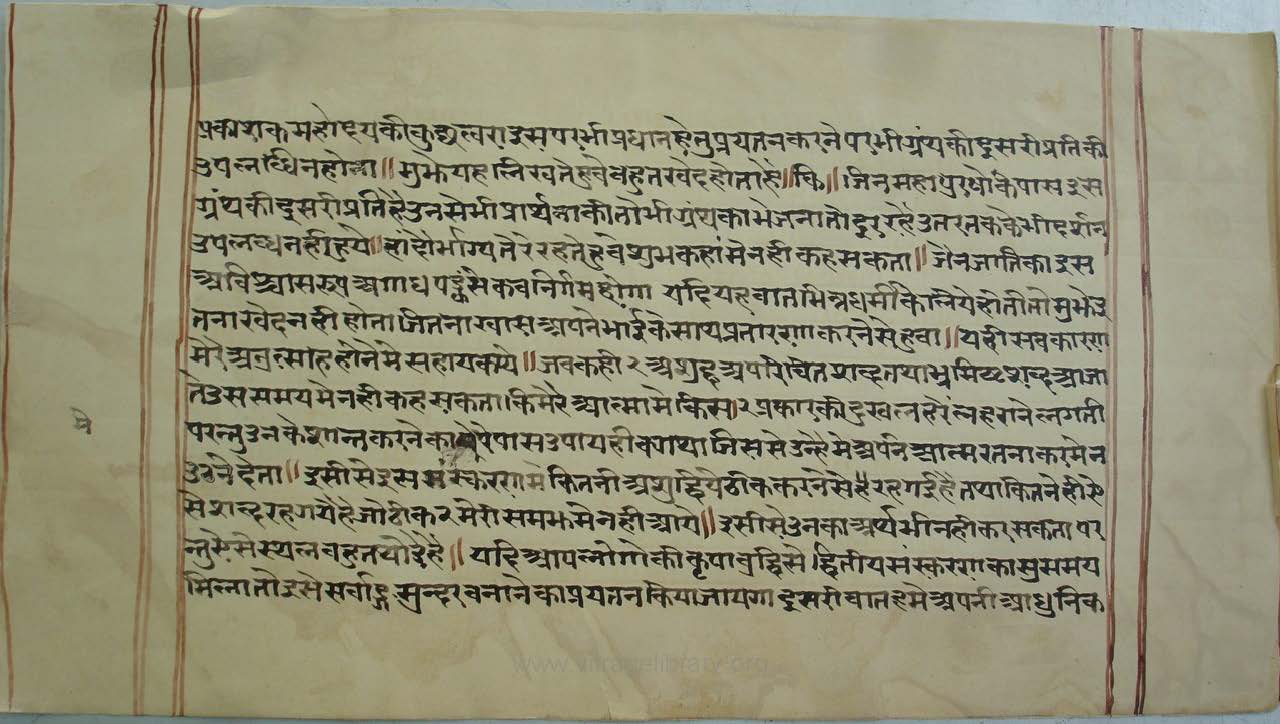 प्रकाशक महोदय की कुछ त्वरा इस पर भी प्रधान हेतु प्रयतन करने पर भी ग्रंथ की दुसरी प्रति की
उपलब्धि न होना॥ मुझे यहा लिखते हुवे बहुत खेद होता है॥ कि॥ जिन महापुरषो के पास इस
ग्रंथ की दुसरी प्रति है उनसे भी प्रार्थना की तो भी ग्रंथ का भेजना तो दुर रहै उतर तक के भी दर्शन
उपलब्ध नही हुये॥ हां दोर्भाग्य तेरे रहते हुवे शुभ कहां मे नही कह सकता॥ जैन जाति का इस
अविश्वास रूप अगाध पङ्क से कब निर्गम होगा यदि यह बात भिन्न धर्मी के लिये होती तो मुझे इ
तना खेद नही होता जितना खास अपने भाई के साथ प्रतारणा करने से हुवा॥ यही सब कारण
मेरे अनुत्साह होने मे सहायक थे॥ जब कही २ अशुद्ध अपरिचित शब्द तथा भ्रमिष्ट शब्द आजा
ते उस समय मे नही कह सकता कि मेरे आत्मा मे किस २ प्रकार की दुख लहरे लहराने लगती
परन्तु उनके शान्त करने का मेरे पास उपाय ही क्या था जिससे उन्हे मे अपने आत्म रतनाकर मे न
उठने देता॥ इसी से इस संस्करण मे कितनी अशुद्धिये ठीक करने से रह गई है तथा कितने ही ऐ
से शब्द रह गये है जो ठीक २ मेरी समझ मे नही आये॥ इसी से उनका अर्थ भी नही कर सकता पर
न्तु ऐसे स्थल बहुत थोडे है॥ यदि आप लोगो की कृपा व्रद्धि से द्वितीय संस्करण का सुसमय
मिला तो इसे सर्वाङ्ग सुन्दर बनाने का प्रयतन किया जायगा दुसरी बात हमे अपनी आधुनिक
मे
www.vitragelibrary.org